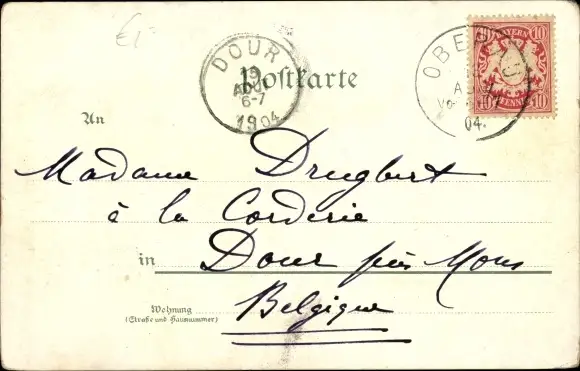 DOUR
19
AOU
6-7
1904
Postkarte
OBERAU
BAYERN
10 10
10 PFENNIG 10
04.
An
Madame Drugbert
à la Corderie
in Dour près Mons
Belgique
Wohnung
(Straße und Hausnummer)